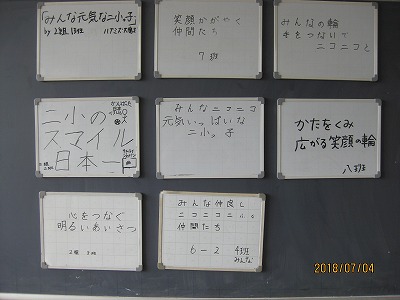 「みんな元気な二小っ子」
by 2組 13班
笑顔かがやく
仲間たち
7班
みんなの輪
手をつないで
ニコニコと
二小の
スマイル
日本一
みんなニコニコ
元気いっぱいな
二小っ子
かたをくみ
広がる笑顔の輪
八班
心をつなぐ
明るいあいさつ
2組 3班
みんな仲良し
ニコニコニコの
仲間たち
6-2 4班
みんな
2018/07/04